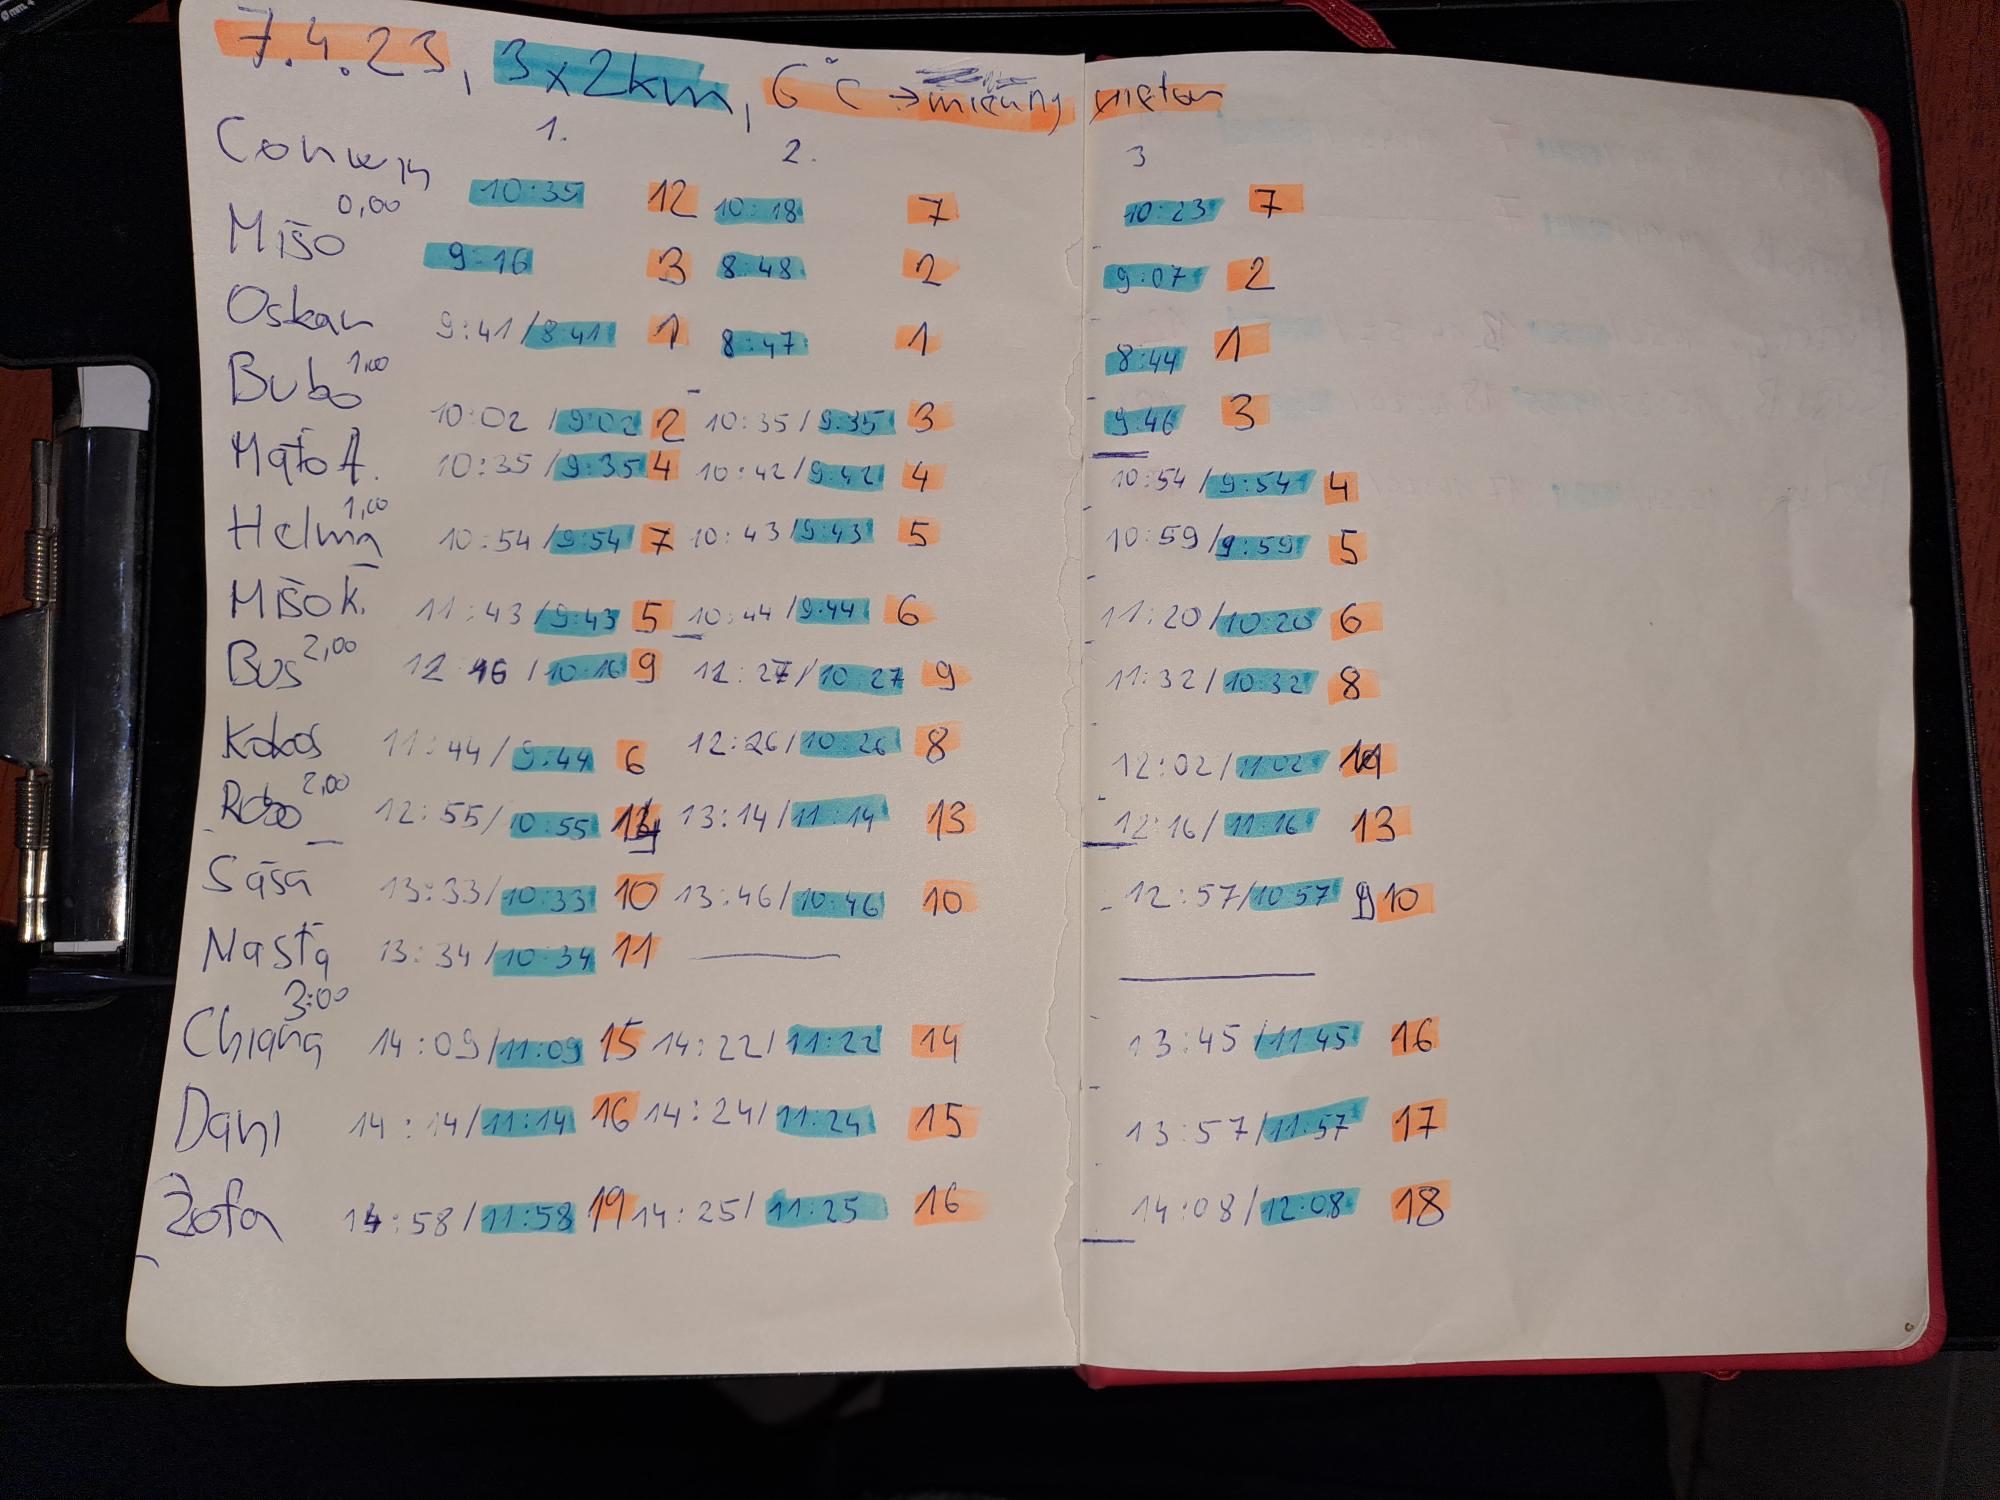 7.4.23, 3x2km, 6°C → mierny vietor
1. 2. 3
Corwin 10:35 12 10:18 7 10:23 7
0,00
Mišo 9:16 3 8:48 2 9:07 2
Oskar 9:41/8:41 1 8:47 1 8:44 1
Bubo 1,00 10:02/9:02 2 10:35/9:35 3 9:46 3
Maťo A. 10:35/9:35 4 10:42/9:42 4 10:54/9:54 4
1,00
Helma 10:54/9:54 7 10:43/9:43 5 10:59/9:59 5
Mišo K. 11:43/9:43 5 10:44/9:44 6 11:20/10:20 6
Bus 2,00 12:16/10:16 9 12:27/10:27 9 11:32/10:32 8
Kokos 11:44/9:44 6 12:26/10:26 8 12:02/11:02
Robo 2,00 12:55/10:55 13:14/11:14 13 12:16/11:16 13
Saša 13:33/10:33 10 13:46/10:46 10 12:57/10:57 10
Nasťa 13:34/10:34 11
3:00
Chiara 14:09/11:09 15 14:22/11:22 14 13:45/11:45 16
Dani 14:14/11:14 16 14:24/11:24 15 13:57/11:57 17
Žofa 14:58/11:58 19 14:25/11:25 16 14:08/12:08 18